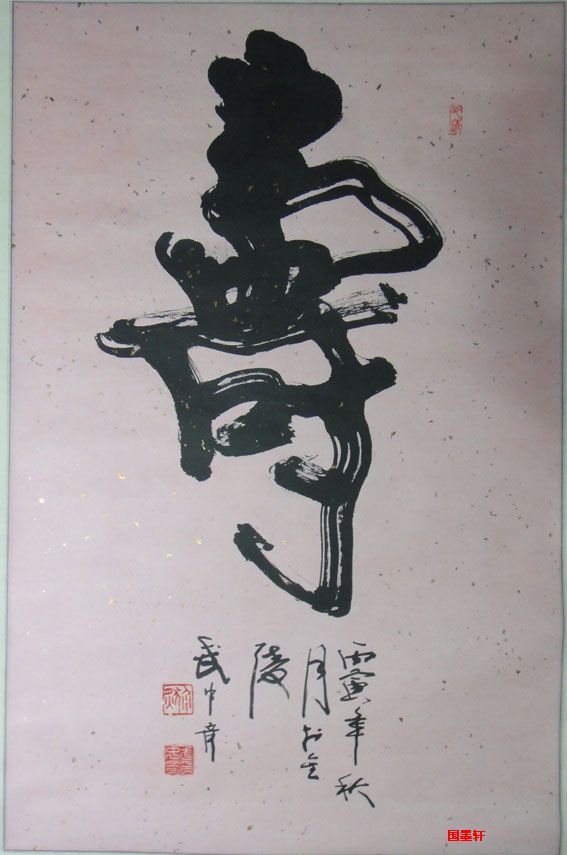 壽
丙寅年秋
月於金
陵
武中奇
国墨轩